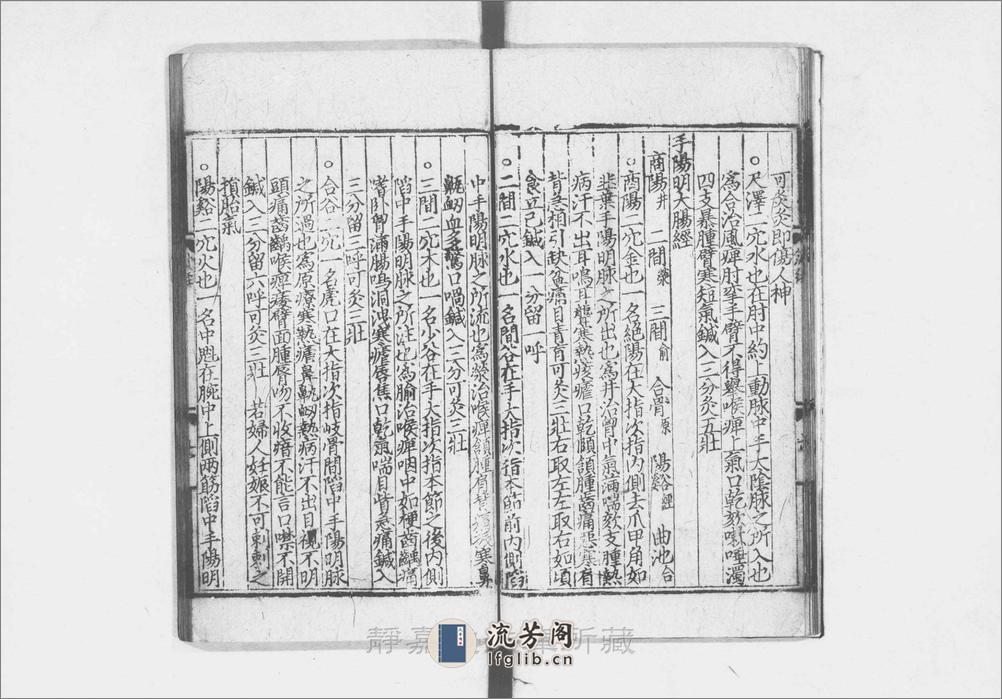 可灸灸即傷人神
○尺澤二穴水也在肘中約上動脉中手太陰脉之所入也
為合治風痺肘攣手臂不得舉喉痺上氣口乾欬嗽唾濁
四支暴腫臂寒短氣鍼入三分灸五壯
手陽明大腸經
商陽井 二間滎 三間俞 合骨原 陽谿經 曲池合
○商陽二穴金也一名絶陽在大指次指内側去爪甲角如
韭葉手陽明脉之所出也為井治胷中氣滿喘欬支腫熱
病汗不出耳鳴耳聾寒熱痎瘧口乾頤頷腫齒痛惡寒肩
背急相引缺盆痛目青盲可灸三壯右取左左取右如頃
食立已鍼入一分留一呼
○二間二穴水也一名間谷在手大指次指本節前内側陷
中手陽明脉之所流也為滎治喉痺頷腫肩背寒鼻
鼽衂血多驚口喎鍼入三分可灸三壯
○三間二穴木也一名少谷在手大指次指本節之後内側
陷中手陽明脉之所注也為腧治喉痺咽中如梗齒齲痛
嗜卧胷滿腸鳴洞洩寒瘧唇焦口乾氣喘目眥急痛鍼入
三分留三呼可灸三壯
○合谷二穴一名虎口在大指次指歧骨間陷中手陽明脉
之所過也為原療寒熱瘧鼻鼽衂熱病汗不出目視不明
頭痛齒齲喉痺痿臂面腫唇吻不收瘖不能言口噤不開
鍼入三分留六呼可灸三壯 若婦人妊娠不可刺刺之
損胎氣
○陽谿二穴火也一名中魁在腕中上側兩筋陷中手陽明
靜嘉 所藏
流芳阁
lfglib.cn